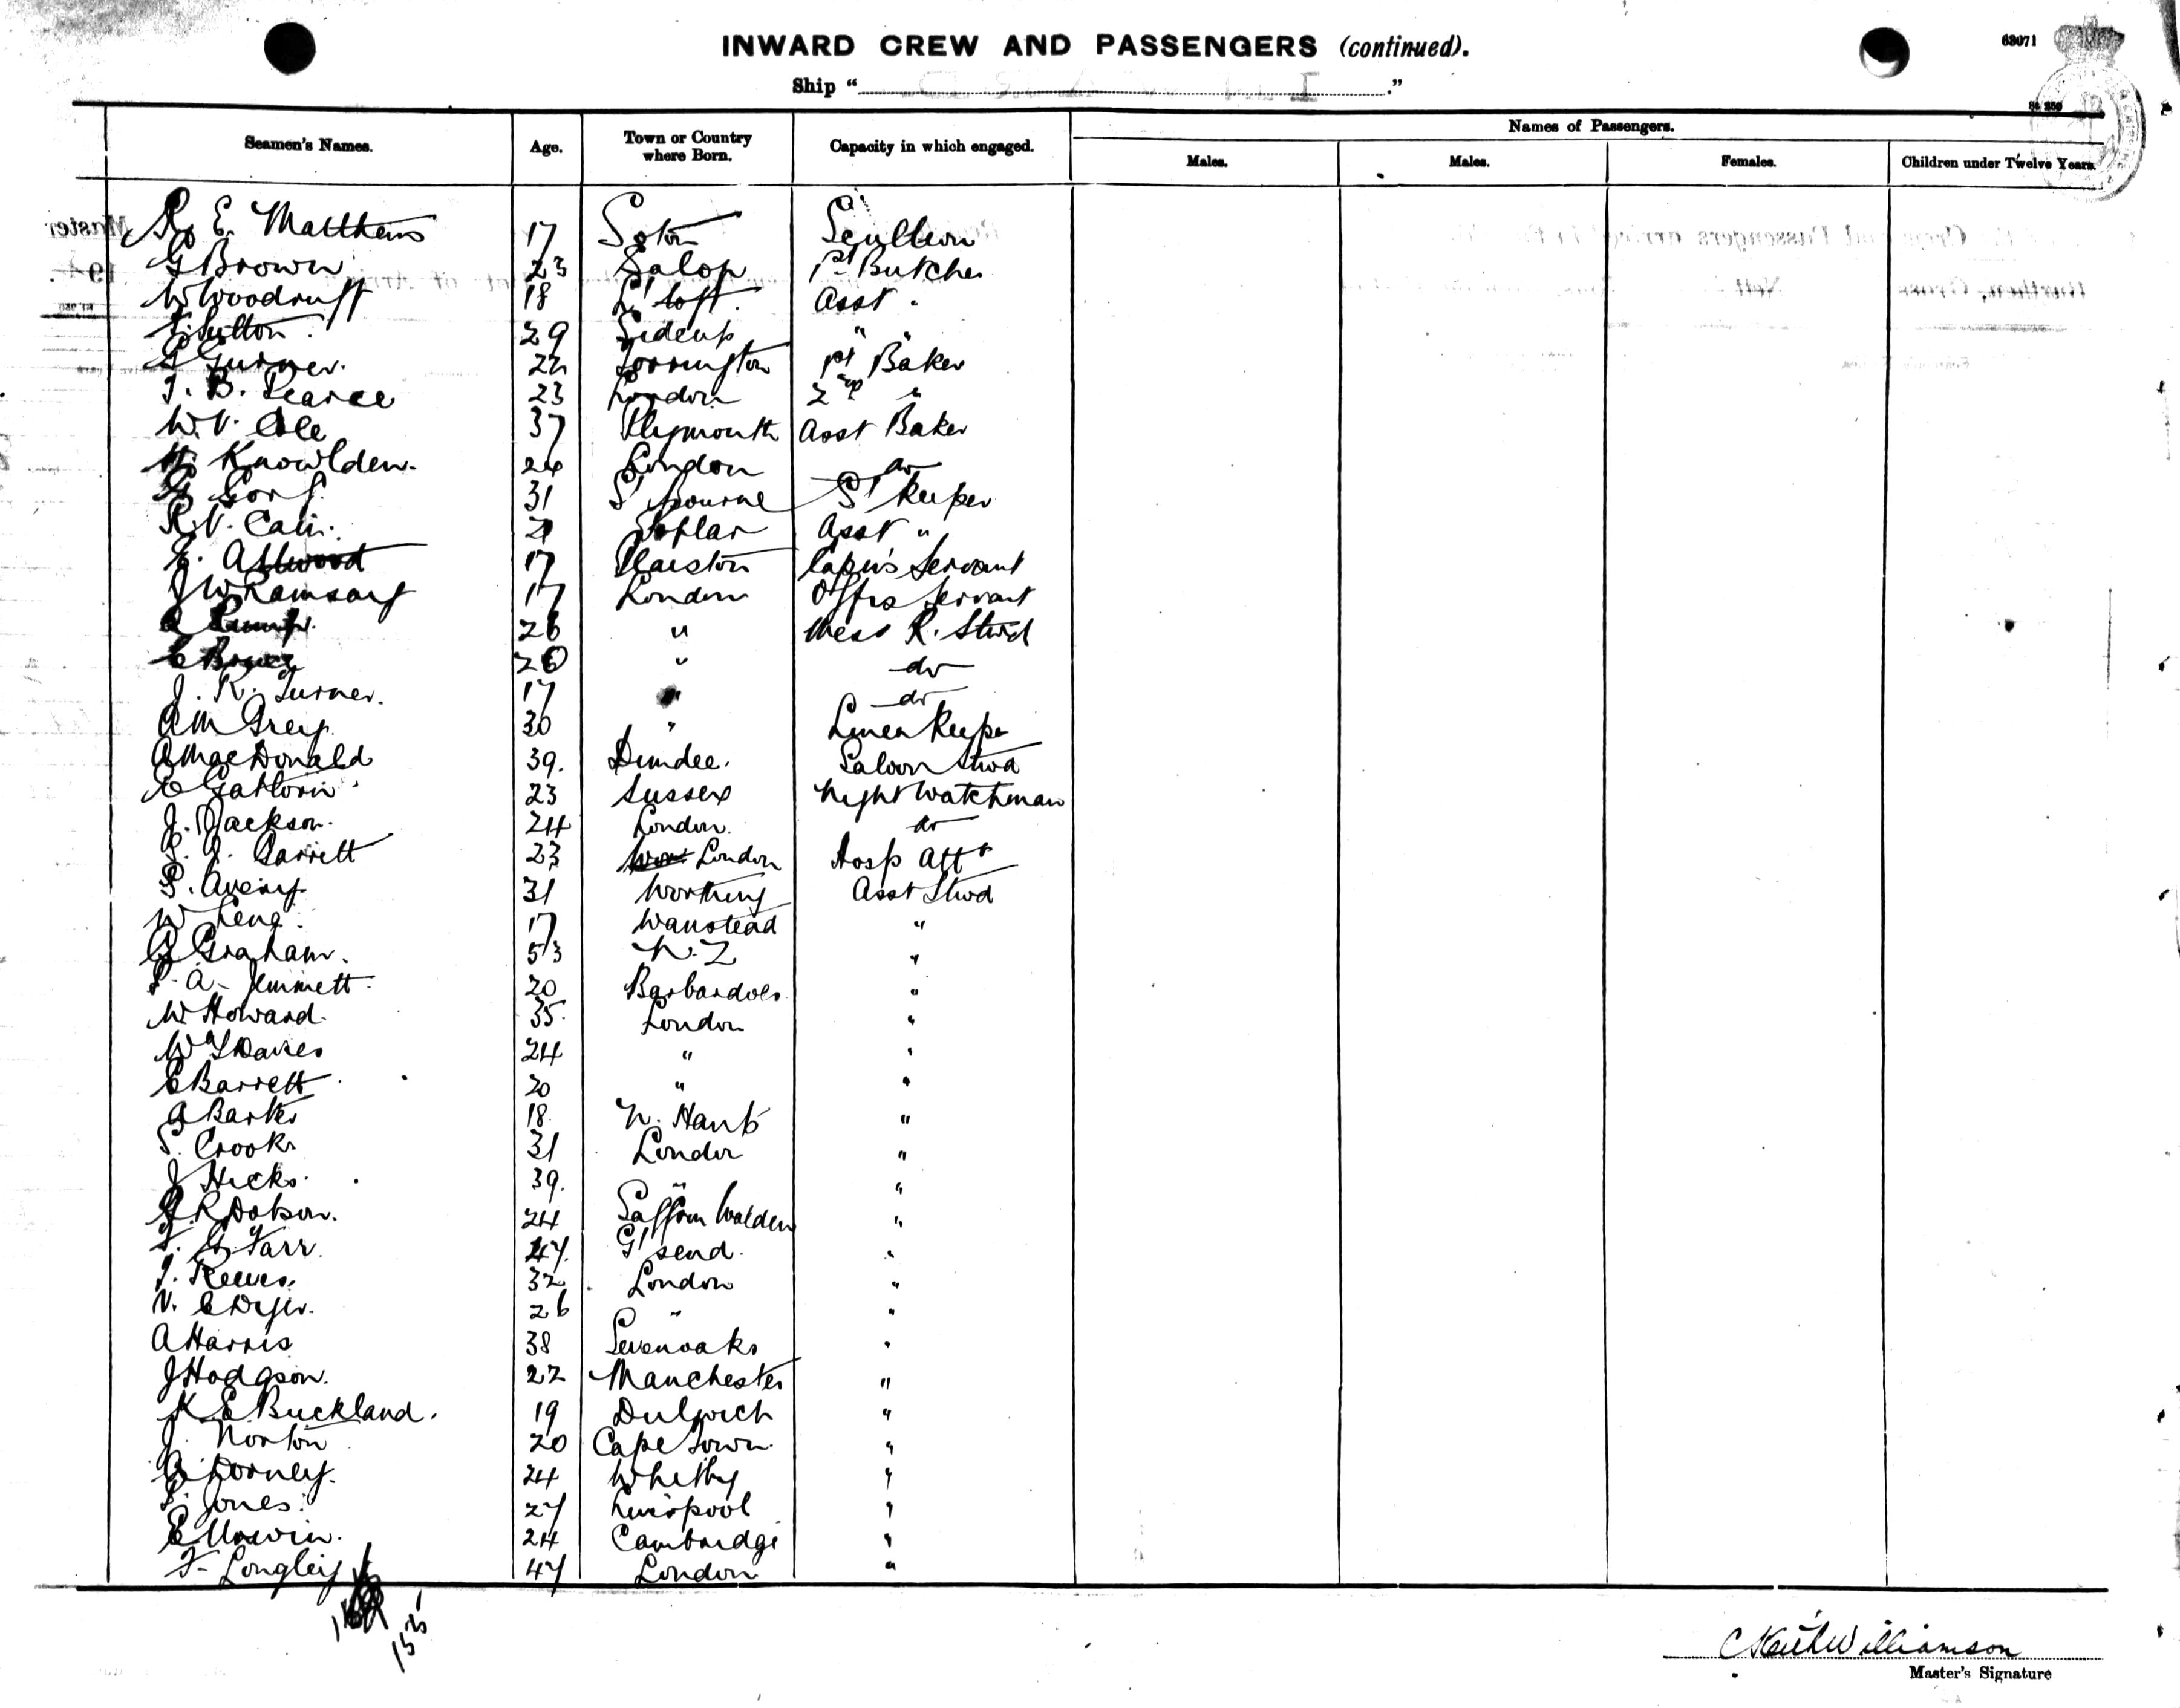 INWARD CREW AND PASSENGERS (continued).
63071
Ship " "
Seamen's Names. Age. Town or Country where Born. Capacity in which engaged. Names of Passengers.
Males. Males. Females. Children under Twelve Years.
R. E. Matthews 17 Soton Scullion
G Brown 23 Salop 1st Butcher
W Woodruff 18 L'toft. Asst "
Sutton 29 Sidcup " "
Turner. 22 Torrington 1st Baker
T. B. Pearce 23 London 2nd "
W. V. Cole 37 Plymouth Asst Baker
H. Knowlden. 24 London do
31 S'bourne St Keeper
R. V. Cain. 21 Poplar Asst "
E. Attwood 17 Plaistow Capn's Servant
J W Ramsay 17 London Offrs Servant
26 " Mess R. Stwd
20 " do
J. R. Turner. 17 " do
A M Grey 30 " Linen Keeper
A MacDonald 39. Dundee. Saloon Stwd
23 Sussex Night Watchman
J. Jackson. 24 London. do
Garrett 23 London Hosp Attt
S. Avery 31 Worthing Asst Stwd
W Leng. 17 Wanstead "
G Graham. 53 N. Z "
A. Jemmett. 20 Barbardoes "
W Howard. 35. London "
W Davies 24 " "
C Barrett. 20 " "
A Barker 18. N. Hants "
S. Crook. 31 London "
J Hicks. 39. " "
R Dobson. 24 Saffron Walden "
T. G. Tarr. 47. G'send. "
T. Reeves. 32 London "
V. C Dyer. 26 " "
A Harris 38 Sevenoaks "
J Hodgson. 22 Manchester "
K E Buckland. 19 Dulwich "
J. Norton 20 Cape Town. "
Dorney. 24 Whitby "
S. Jones. 27 Liverpool "
E Unwin. 24 Cambridge "
F. Longley 47 London "
155
C Keith Williamson
Master's Signature